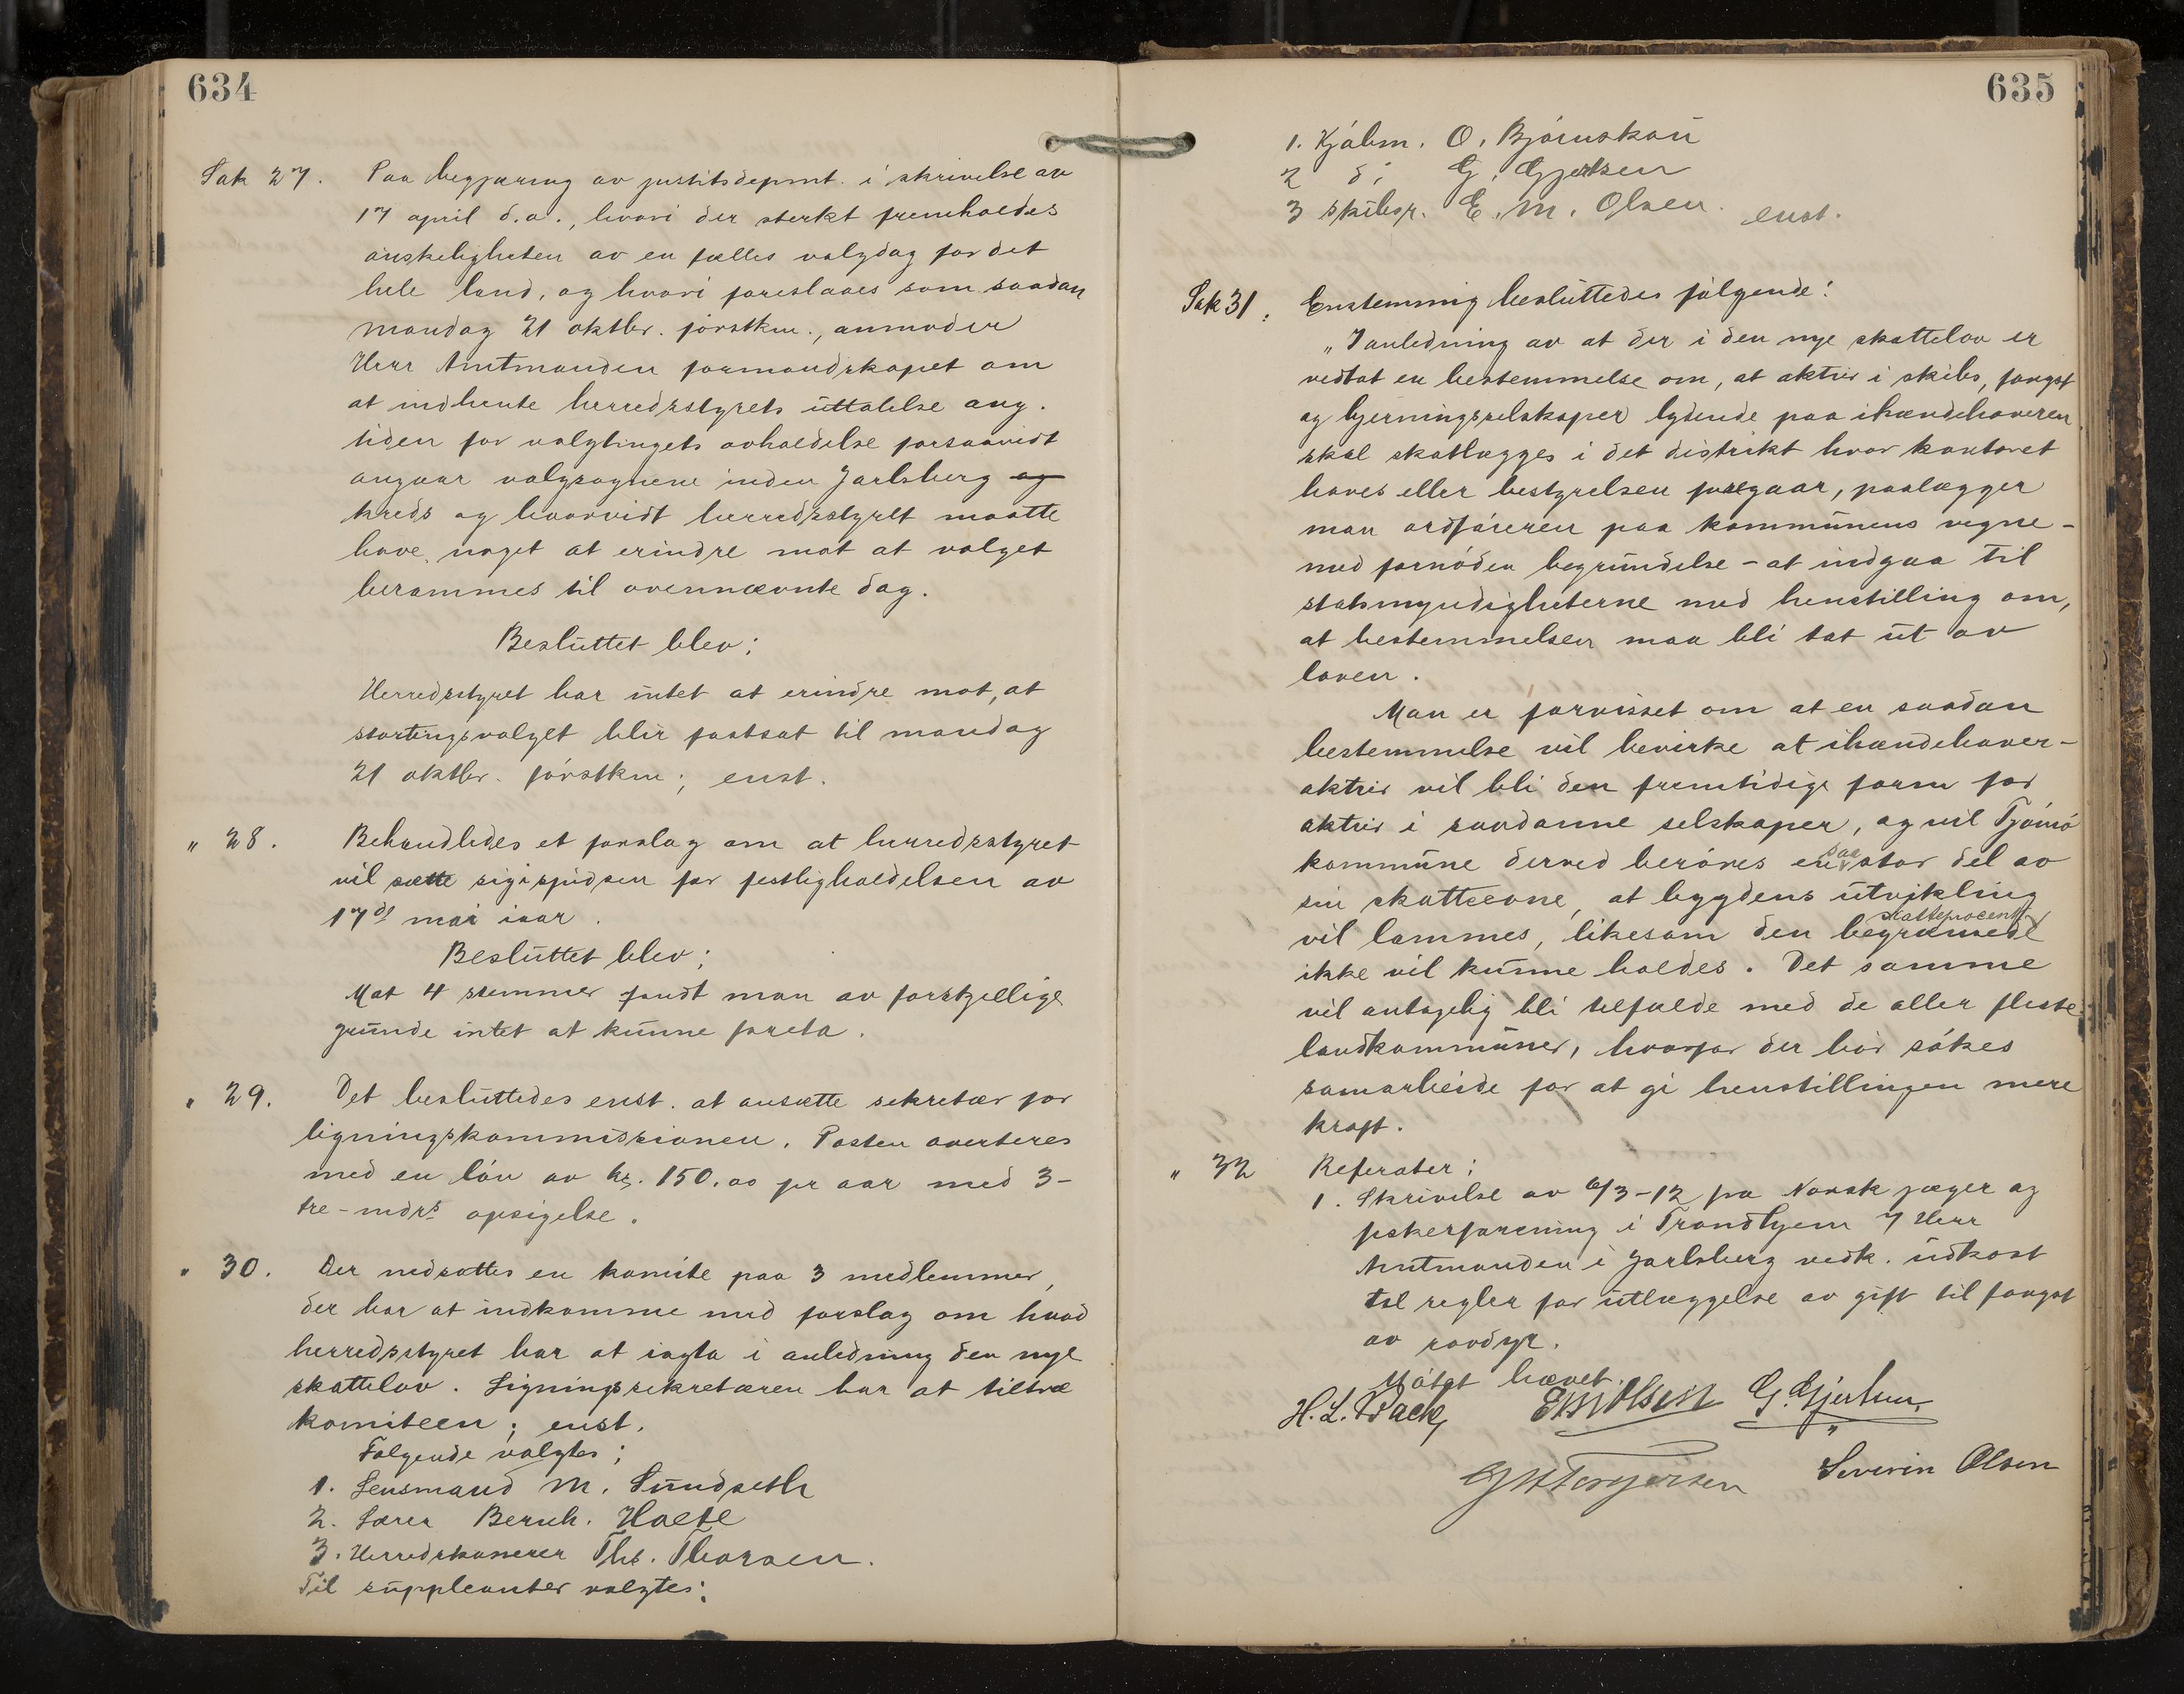 634
Sak 27. Paa begjæring av justitsdepmt. i skrivelse av
17 april d.a., hvori der sterkt fremholdes
ønskeligheten av en fælles valgdag for det
hele land, og hvori foreslaaes som saadan
mandag 21 oktbr. førstkm., anmoder
Herr Amtmanden formandskapet om
at indhente herredsstyrets uttalelse ang.
tiden for valgtingets avholdelse forsaavidt
angaar valgsognene inden Jarlsberg og
kreds og hvorvidt herredsstyret maatte
have noget at erindre mot at valget
berammes til ovennævnte dag.
Besluttet blev;
Herredsstyret har intet at erindre mot, at
stortingsvalget blir fastsat til mandag
21 oktbr. førstkm; enst.
" 28. Behandledes et forslag om at herredsstyret
vil sætte sig i spidsen for festligholdelsen av
17de mai iaar.
Besluttet blev;
Mot 4 stemmer fandt man av forskjellige
grunde intet at kunne foreta.
" 29. Det besluttedes enst. at ansætte sekretær for
ligningskommissionen. Posten averteres
med en løn av kr. 150.00 pr aar med 3-
tre-mdrs opsigelse.
" 30. Der nedsattes en komite paa 3 medlemmer,
der har at indkomme med forslag om hvad
herredsstyret har at iagta i anledning den nye
skattelov. Ligningssekretæren har at tiltræ
komiteen; enst.
Følgende valgtes;
1. Lensmand M. Sundseth
2. Lærer Bernh. Holte
3. Herredskasserer Ths. Thorsen.
Til suppleanter valgtes:
635
1. Kjøbm. O. Bjørnskau
2 do. G. Gjertsen
3 skibsr. E. M. Olsen. enst.
Sak 31. Enstemmig besluttedes følgende:
"I anledning av at der i den nye skattelov er
vedtat en bestemmelse om, at aktier i skibs, fangst
og bjerningsselskaper lydende paa ihændehaveren
skal skatlægges i det distrikt hvor kontoret
haves eller bestyrelsen foregaar, paalægger
man ordføreren paa kommunens vegne -
med fornøden begrundelse - at indgaa til
statsmyndigheterne med henstilling om,
at bestemmelsen maa bli tat ut av
loven.
Man er forvisset om at en saadan
bestemmelse vil bevirke at ihændehaver-
aktier vil bli den fremtidige form for
aktier i saadanne selskaper, og vil Tjømø
kommune derved berøves en saa stor del av
sin skatteevne, at bygdens utvikling
vil lammes, likesom den begrænsede skatteprocent
ikke vil kunne holdes. Det samme
vil antagelig bli tilfælde med de aller fleste
landkommuner, hvorfor der bør søkes
samarbeide for at gi henstillingen mere
kraft.
" 32 Referater;
1. Skrivelse av 6/3-12 fra Norsk jæger og
fiskerforening i Trondhjem 7 Herr
Amtmanden i Jarlsberg vedk. utkast
til regler for utlæggelse av gift til fangst
av rovdyr.
Møtet hævet.
H. L. Back, EM Olsen G. Gjertsen.
Severin Olsen